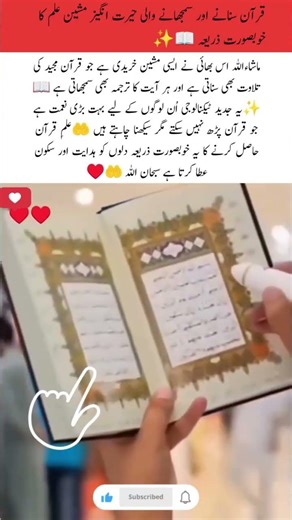 قرآن سنانے اور سمجھانے والی حیرت انگیز مشین علم کا
خوبصورت ذریعہ 📖✨
ماشاءاللہ اس بھائی نے ایسی مشین خریدی ہے جو قرآن مجید کی
تلاوت بھی سناتی ہے اور ہر آیت کا ترجمہ بھی سمجھاتی ہے 📖
✨یہ جدید ٹیکنالوجی اُن لوگوں کے لیے بہت بڑی نعمت ہے
جو قرآن پڑھ نہیں سکتے مگر سیکھنا چاہتے ہیں 🤲علم قرآن
حاصل کرنے کا یہ خوبصورت ذریعہ دلوں کو ہدایت اور سکون
عطا کرتا ہے سبحان اللہ 🤲❤️
Subscribed